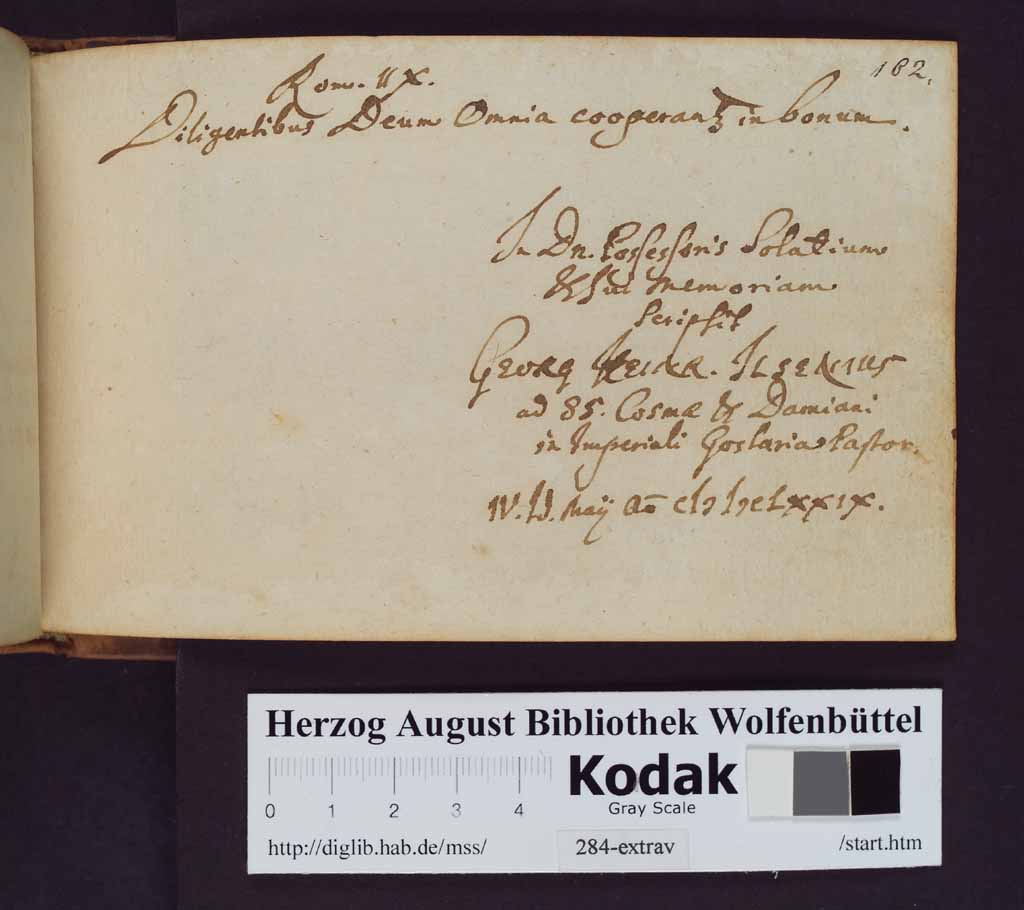 182.
Rom. IIX.
Diligentibus Deum Omnia cooperantꝫ in bonum.
In Dn. Possessoris Solatium
& sui memoriam
scripsit
Georg Heinr. Ilsenius
ad SS. Cosmæ & Damiani
in Imperiali Goslaria Pastor.
IV. Maÿ Aō cIɔ Iɔc LXXIX.
Herzog August Bibliothek Wolfenbüttel
Kodak
Gray Scale
0 1 2 3 4
http://diglib.hab.de/mss/ 284-extrav /start.htm